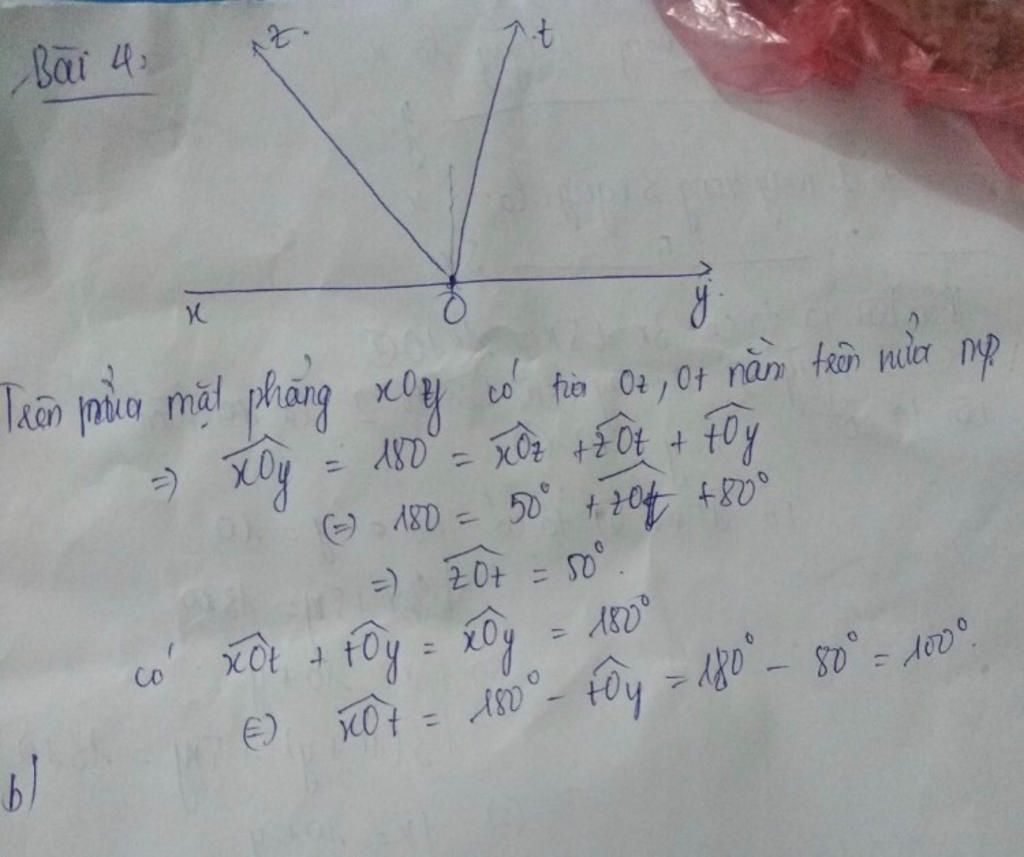 Bài 4:
z
t
x
O
y
Trên nửa mặt phẳng xOy có tia Oz, Ot nằm trên nửa mp
=> $\widehat{xOy}$ = 180° = $\widehat{xOz}$ + $\widehat{zOt}$ + $\widehat{tOy}$
(=) 180 = 50° + $\widehat{zOt}$ + 80°
=) $\widehat{zOt}$ = 50°.
có $\widehat{xOt}$ + $\widehat{tOy}$ = $\widehat{xOy}$ = 180°
(=) $\widehat{xOt}$ = 180° - $\widehat{tOy}$ = 180° - 80° = 100°.
b)